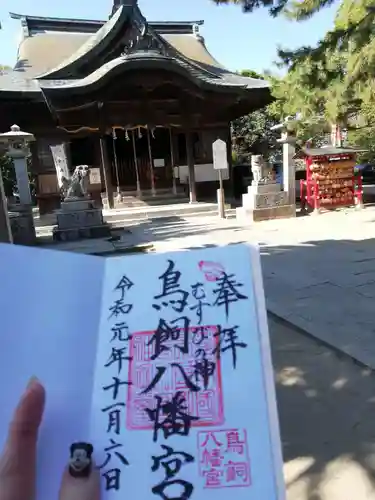 奉拝
むすびの神
鳥飼八幡宮
令和元年十一月六日
鳥飼
八幡宮